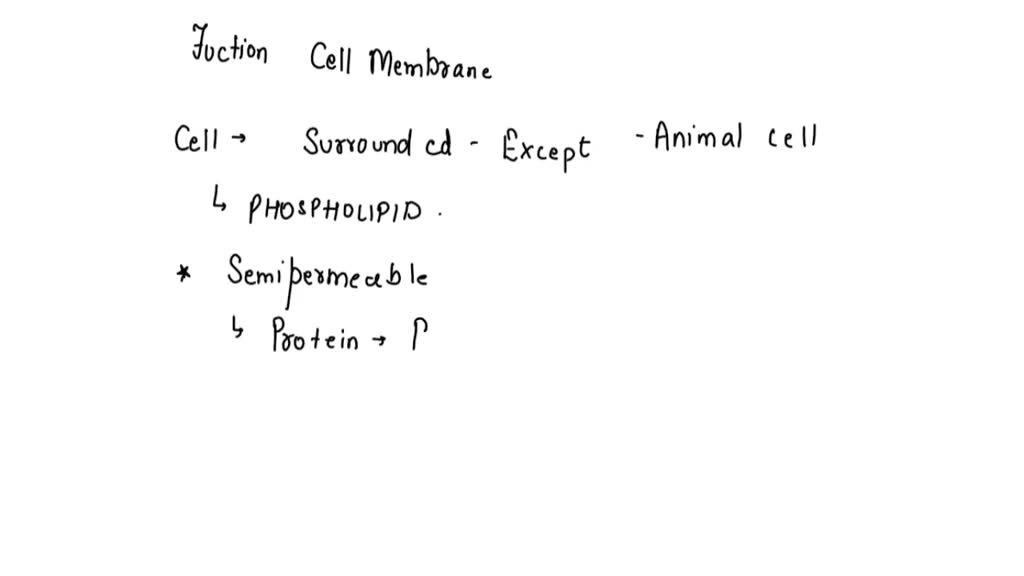 Fuction Cell Membrane
Cell → Surround cd - Except - Animal cell
↳ PHOSPHOLIPID .
* Semipermeable
↳ Protein → P